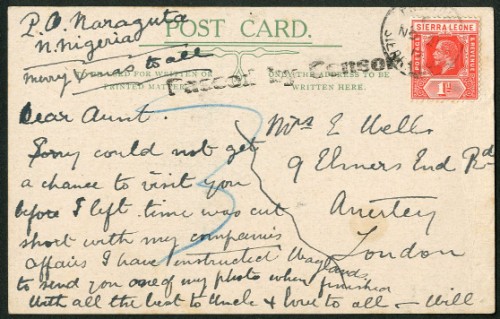 P.O. Naraguta
N. Nigeria
Merry Xmas to all
POST CARD.
FOR WRITTEN OR
PRINTED MATTER
ON THE ADDRESS TO BE
WRITTEN HERE.
Passed by Censor
SIERRA LEONE
POSTAGE
& REVENUE
1d
3
Dear Aunt.
Sorry could not get
a chance to visit you
before I left. time was cut
short with my companies
affairs I have instructed
to send you one of my photo when finished
With all the best to Uncle & love to all – Will
Mrs E Wells
9 Elmers End Rd
Anerley
London